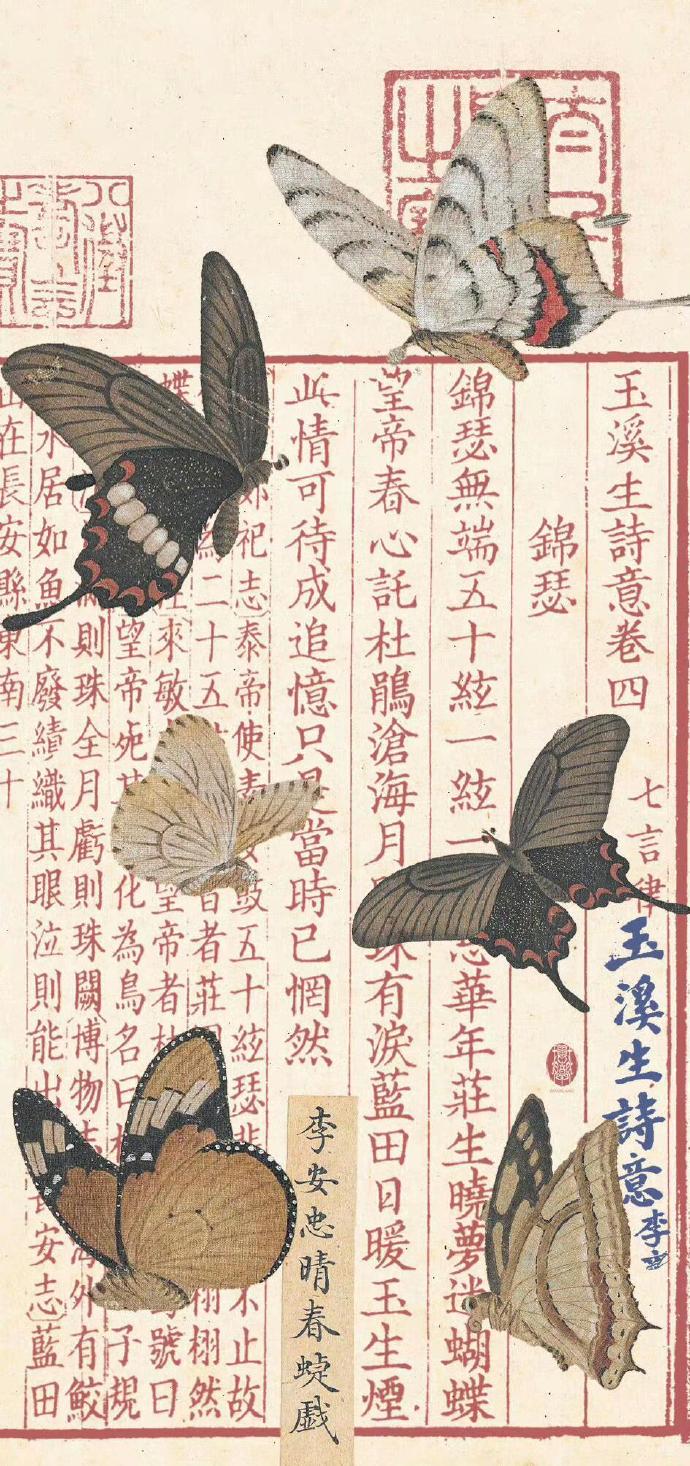 玉溪生詩意卷四
七言律
錦瑟
錦瑟無端五十絃一絃一思華年莊生曉夢迷蝴蝶
望帝春心託杜鵑滄海月珠有淚藍田日暖玉生煙
此情可待成追憶只是當時已惘然
祀志泰帝使素女鼓五十絃瑟悲不止故
為二十五者莊栩栩然
蝶來敏望帝者杜號曰
望帝死其化為鳥名曰子規
則珠全月虧則珠闕博物志海外有鮫
水居如魚不廢績織其眼泣則能出長安志藍田
山在長安縣東南三十
玉溪生詩意
李安忠晴春蜨戲